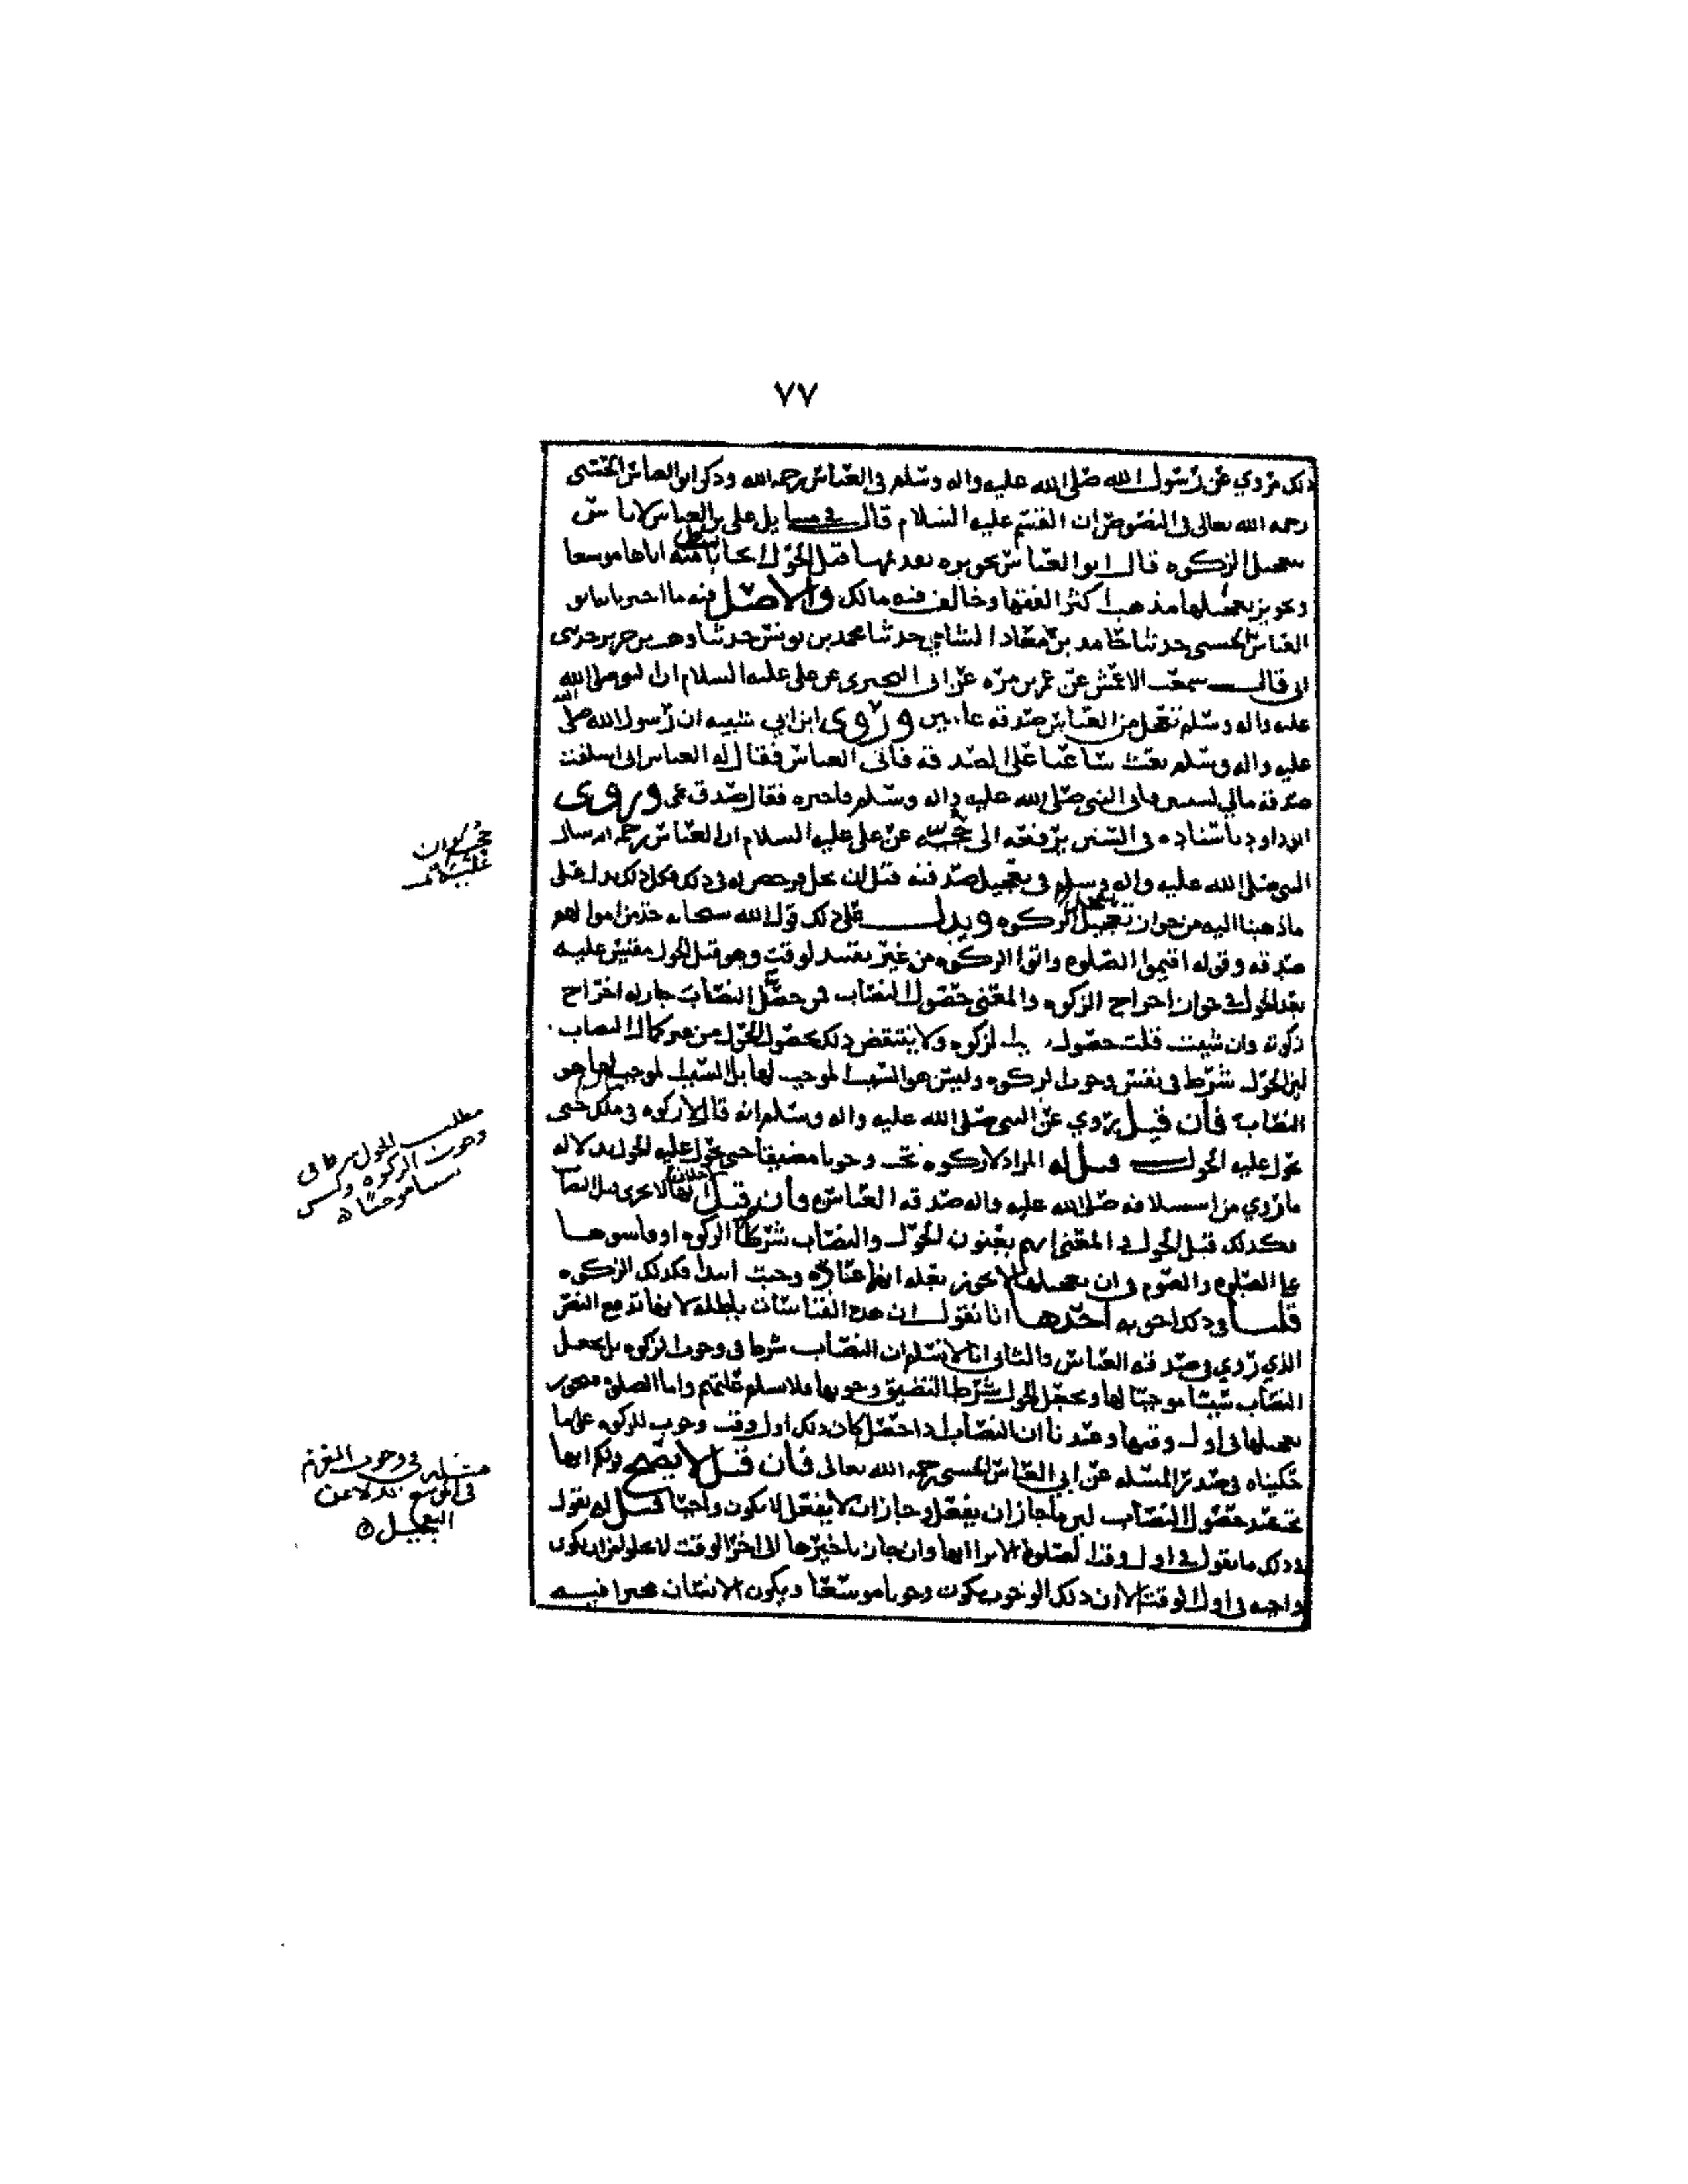 ٧٧
ذلك مروي عن رسول الله صلى الله عليه واله وسلم في العباس رحمه الله وذكر ابو العباس الحسني
رحمه الله تعالى في النصوص ان القسم عليه السلام قال في مسايل علي بن العباس لا باس
بتعجيل الزكوه قال ابو العباس تجويزه بعد قبل الحول منه اياها موسعا
وتجويز تعجيلها مذهب اكثر الفقها وخالف فيه مالك والاصل فيه ما اخبرنا ابو
العباس الحسني حدثنا حامد بن معاذ الشامي حدثنا محمد بن يونس حدثنا وهب بن جرير حدثني
ابي قال سمعت الاعمش عن عمر بن مره عن ابي البحتري عن علي عليه السلام ان النبي صلى الله
عليه واله وسلم تعجل من العباس صدقه عامين وروى ابن ابي شيبه ان رسول الله صلى الله
عليه واله وسلم بعث ساعيا على الصدقه فاتى العباس فقال له العباس اني اسلفت
صدقه مالي لسنتين فاتى النبي صلى الله عليه واله وسلم فاخبره فقال صدق عمي وروى
ابو داود باسناده في السنن يرفعه الى حجيه عن علي عليه السلام ان العباس رحمه الله سال
النبي صلى الله عليه واله وسلم في تعجيل صدقته قبل ان تحل فرخص له في ذلك فكل ذلك يدل على
ما ذهبنا اليه من جواز تعجيل الزكوه ويدل على ذلك قول الله سبحانه خذ من اموالهم
صدقه وقوله اقيموا الصلوه واتوا الزكوه من غير تقييد لوقت وهو قبل الحول مقيس عليه
بعد الحول في جواز اخراج الزكوه والمعنى حصول النصاب فمن حصل النصاب جاز له اخراج
زكوته وان شيت قلت حصول الزكوه ولا ينتقض ذلك بحصول الحول من غير كمال النصاب
لان الحول شرط في نفس وجوب الزكوه وليس هو السبب الموجب لها بل السبب الموجب لها هو
النصاب فان قيل روي عن النبي صلى الله عليه واله وسلم انه قال لا زكوه في ملك حتى
يحول عليه الحول قيل له المراد لا زكوه تجب وجوبا مضيقا حتى يحول عليه الحول بدلاله
ما روي من استسلافه صلى الله عليه واله صدقه العباس فان قيل انها لا تجزي قبل النصاب
فكذلك قبل الحول والمعنى انهم يعنون الحول والنصاب شرطا الزكوه او قاسوها
على الصلوه والصوم في ان تعجيلها لا يجوز بعله انها عباده وجبت ابتدا فكذلك الزكوه
قلنا في ذلك اجوبه احدها انا نقول ان هذه القياسات باطله لانها تدفع النص
الذي روي في صدقه العباس والثاني انا لا نسلم ان النصاب شرط في وجوب الزكوه بل نجعل
النصاب سببا موجبا لها ونجعل الحول شرطا لتضيق وجوبها فلا نسلم علتهم واما الصلوه فيجوز
تعجيلها في اول وقتها وعندنا ان النصاب اذا حصل كان ذلك اول وقت وجوب الزكوه على ما
حكيناه في صدر المسله عن ابي العباس الحسني رحمه الله تعالى فان قيل لا يصح قولكم انها
تجب عند حصول النصاب لان ما جاز ان يفعل وجاز ان لا يفعل لا يكون واجبا قيل له نقول
في ذلك ما نقول في اول وقت الصلوه الا ترا انها وان جاز تاخيرها الى اخر الوقت لا تخلو من ان يكون
واجبه في اول الوقت الا ان ذلك الوجوب يكون وجوبا موسعا ويكون الانسان مخيرا فيه
مطلب الحول شرط في
وجوب الزكوه وليس
سببا موجبا
مسله في وجوب العزم
في الموسع بدلا عن
التعجيل